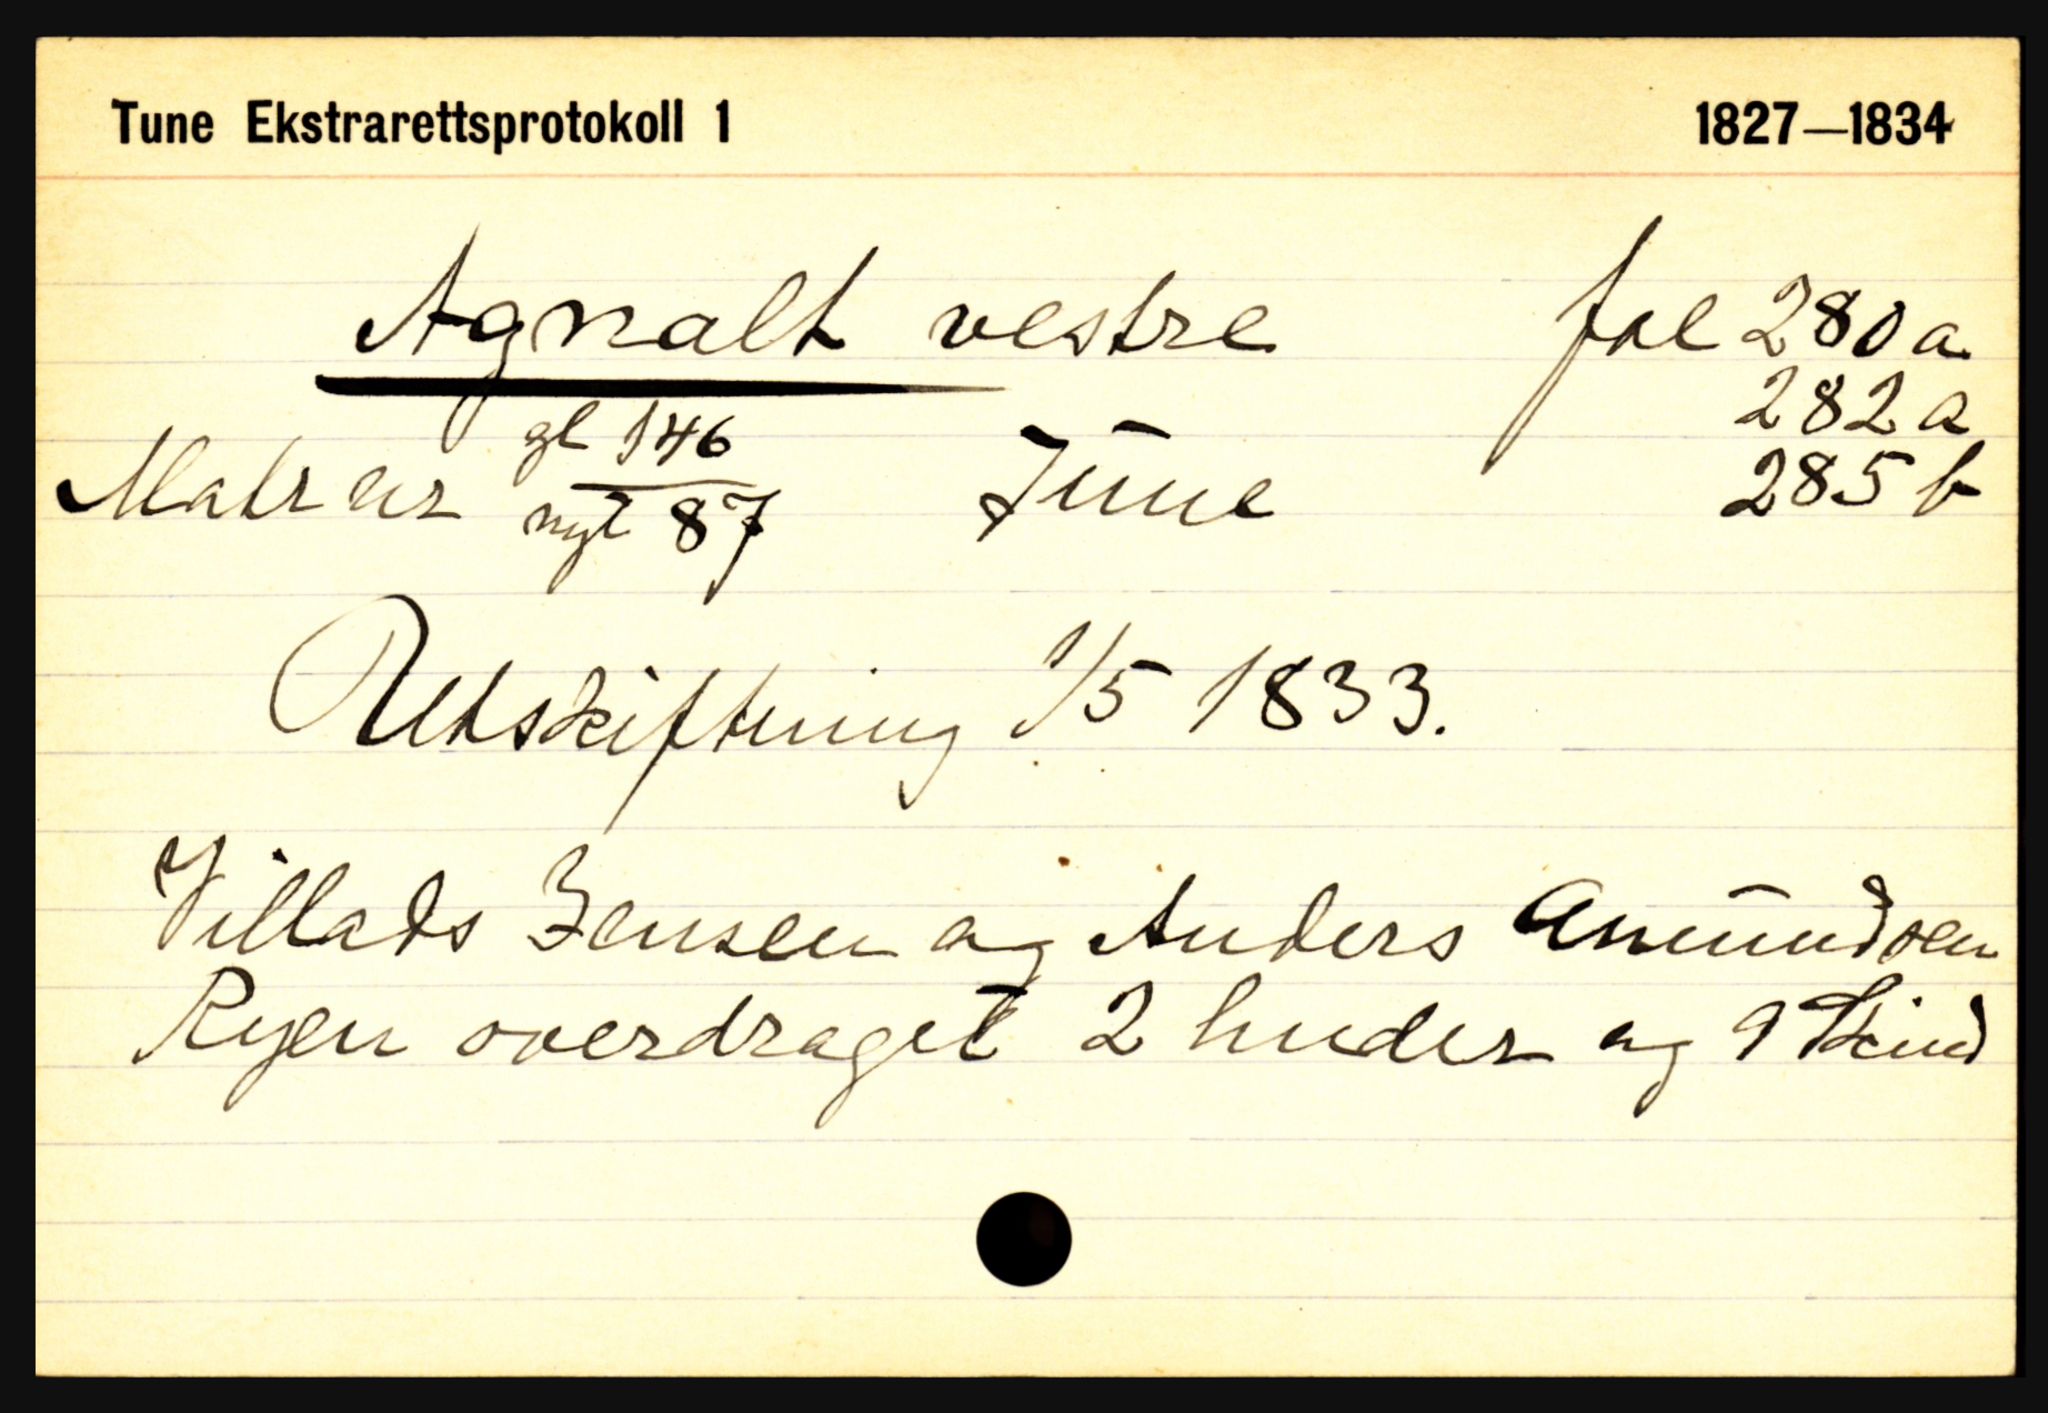 Tune Ekstrarettsprotokoll 1 1827—1834
Agnalt vestre fol 280 a
282 a
Matr nr gl 146 Tune 285 b
nyt 87
Utskiftning 1/5 1833.
Villads Jensen og Anders Amundsen
Ryen overdraget 2 huder og 9 skind